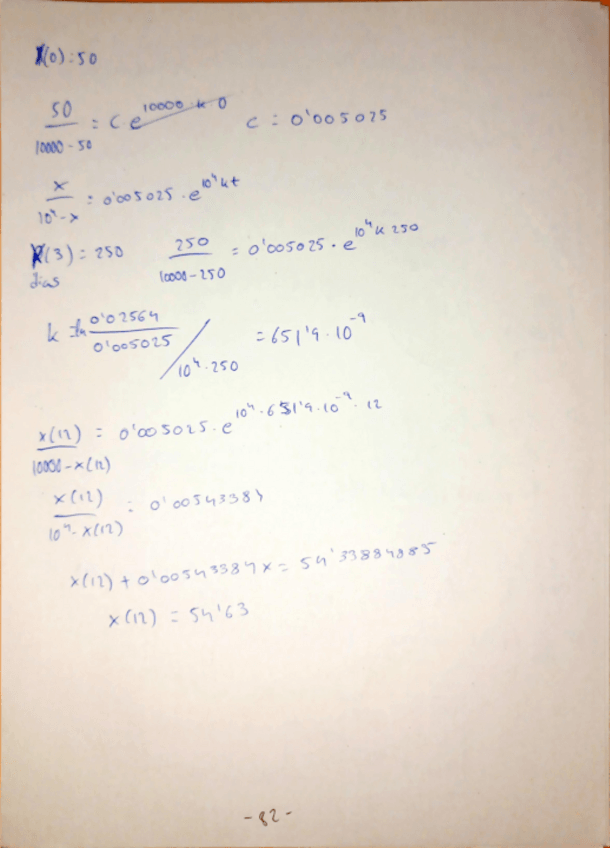 X(0) = 50
50/(10000 - 50) = C e^(10000·k·0) C = 0'005025
x/(10⁴-x) = 0'005025 · e^(10⁴kt)
X(3) = 250 250/(10000-250) = 0'005025 · e^(10⁴k 250)
dias
k = ln (0'02564/0'005025) / 10⁴·250 = 651'9·10⁻⁹
x(12)/(10000-x(12)) = 0'005025 · e^(10⁴·651'9·10⁻⁹·12)
x(12)/(10⁴-x(12)) = 0'00543384
x(12) + 0'00543384x = 54'33884885
x(12) = 54'63
-82-